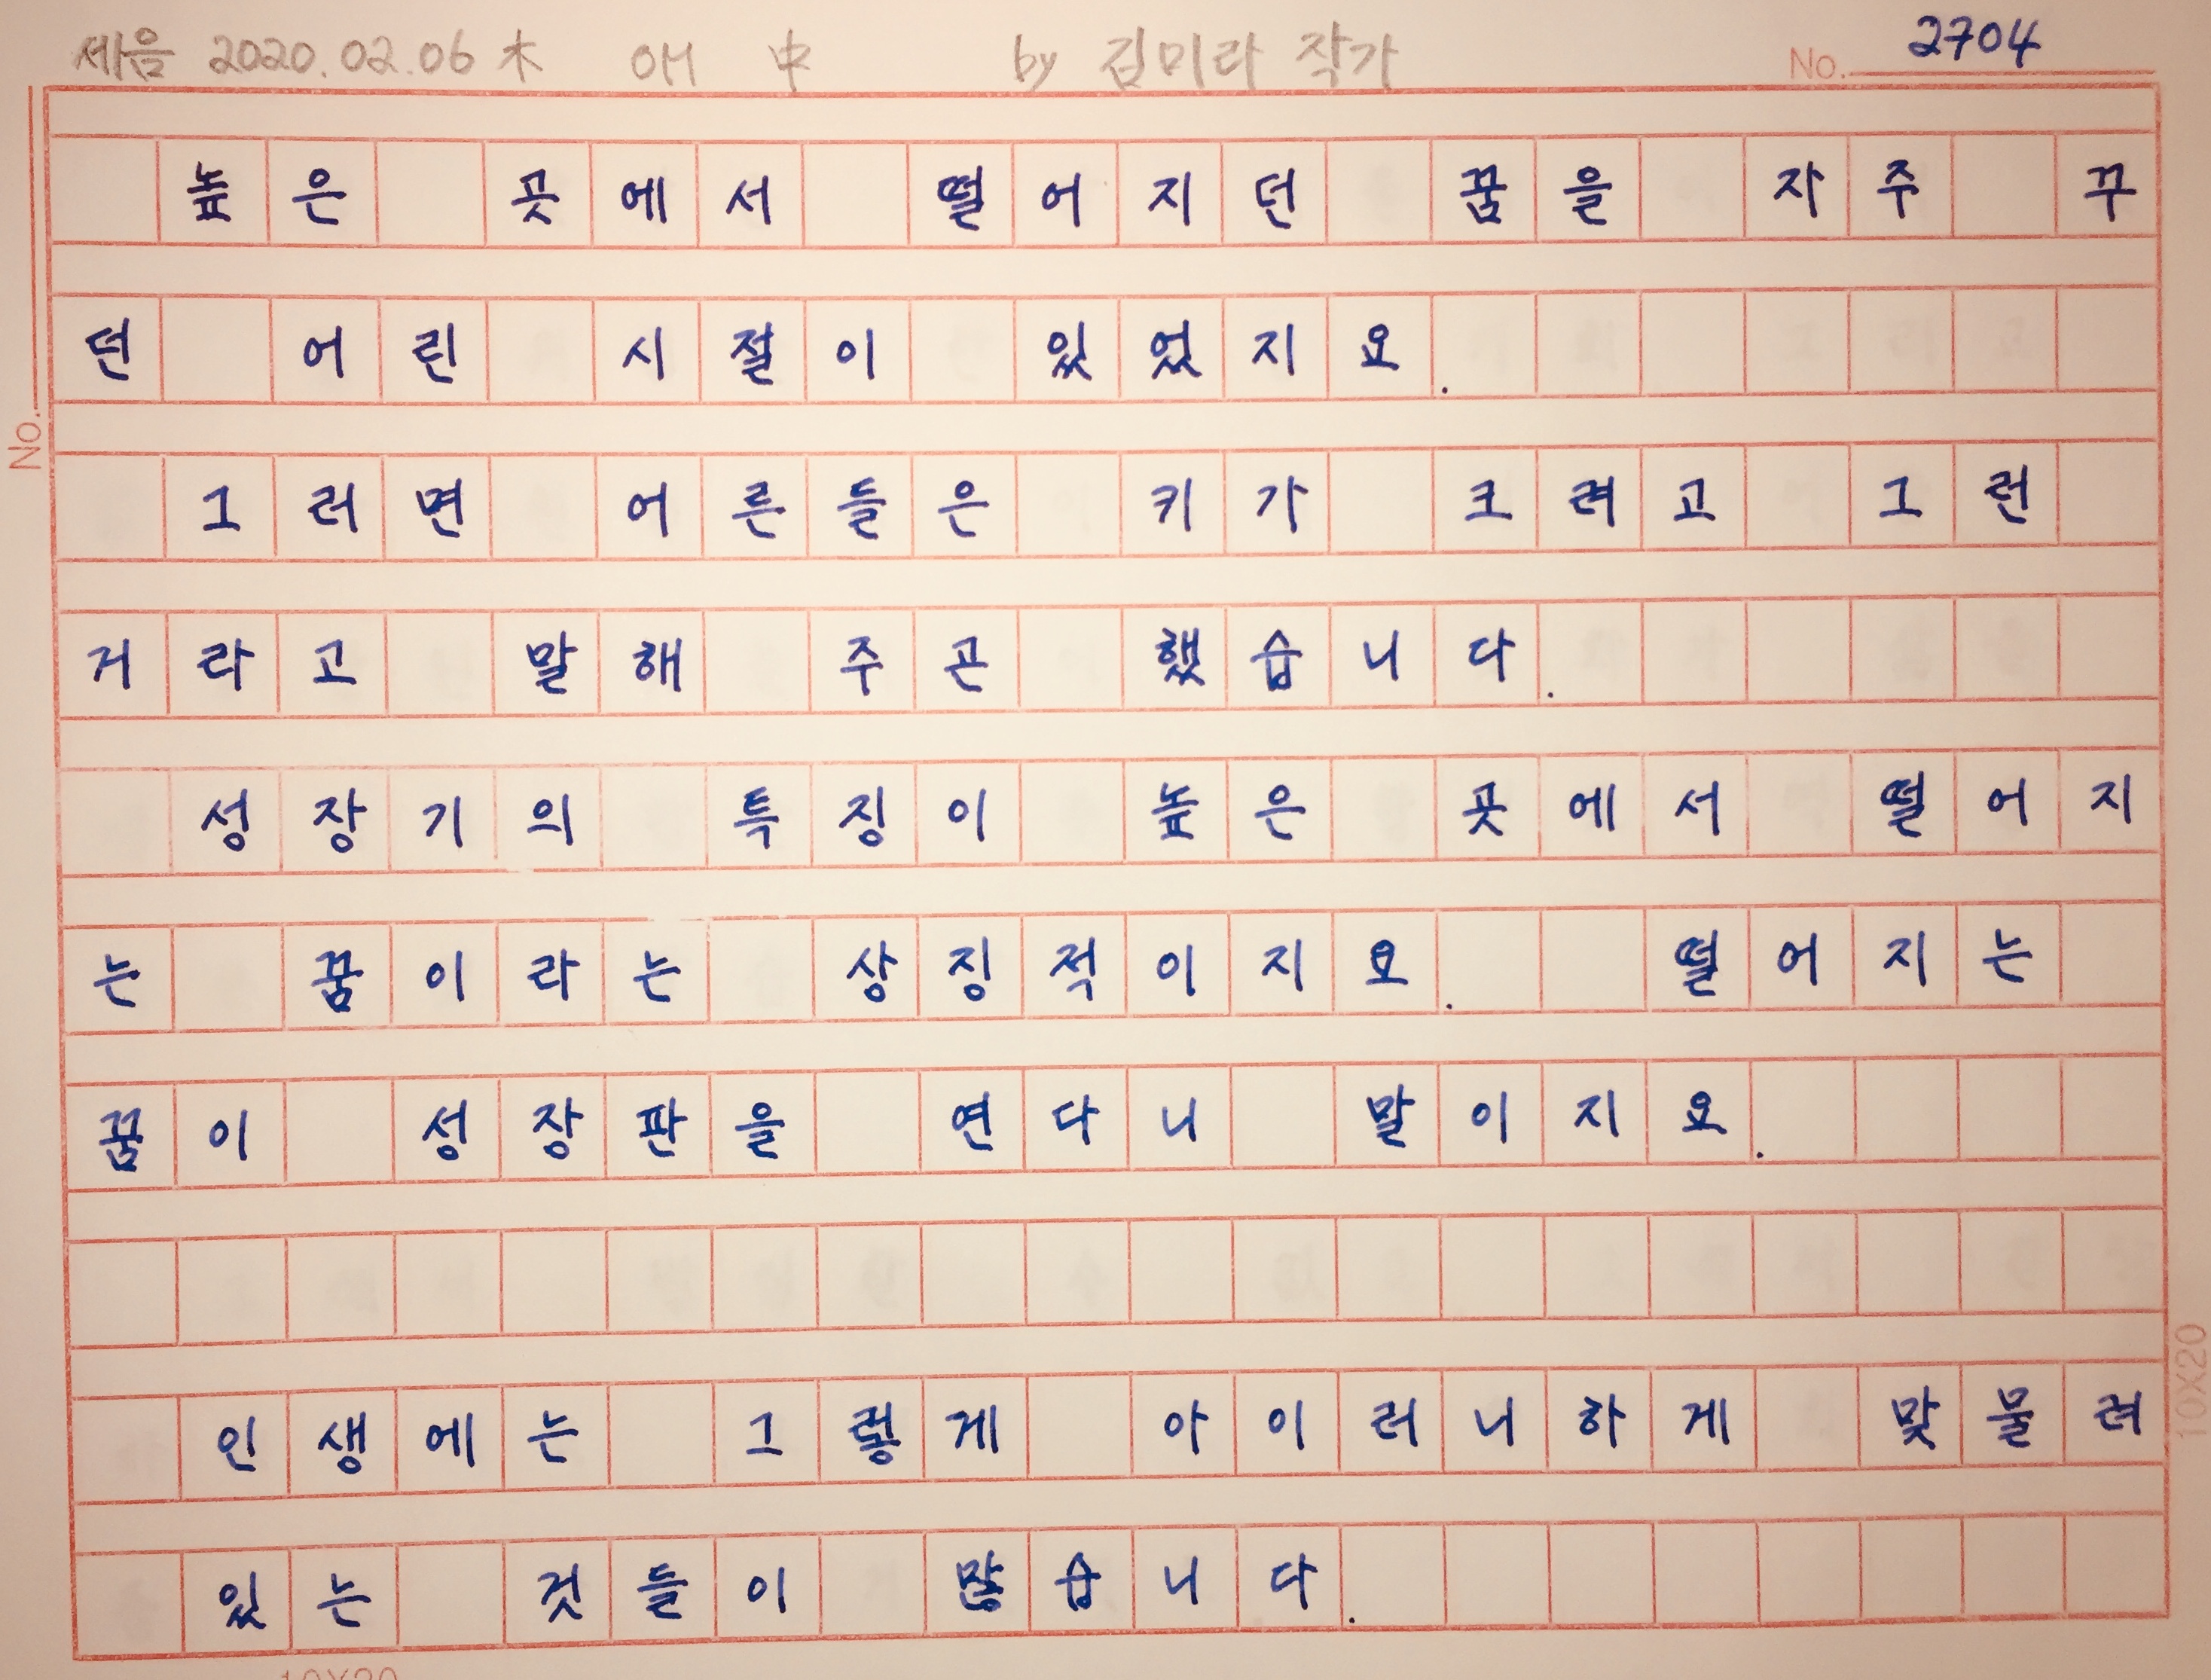 세음 2020.02.06 木 애 中 by 김미라 작가 No. 2704
높은 곳에서 떨어지던 꿈을 자주 꾸
던 어린 시절이 있었지요.
그러면 어른들은 키가 크려고 그런
거라고 말해 주곤 했습니다.
성장기의 특징이 높은 곳에서 떨어지
는 꿈이라는 상징적이지요. 떨어지는
꿈이 성장판을 연다니 말이지요.
인생에는 그렇게 아이러니하게 맞물려
있는 것들이 많습니다.
No.
10X20
10X20